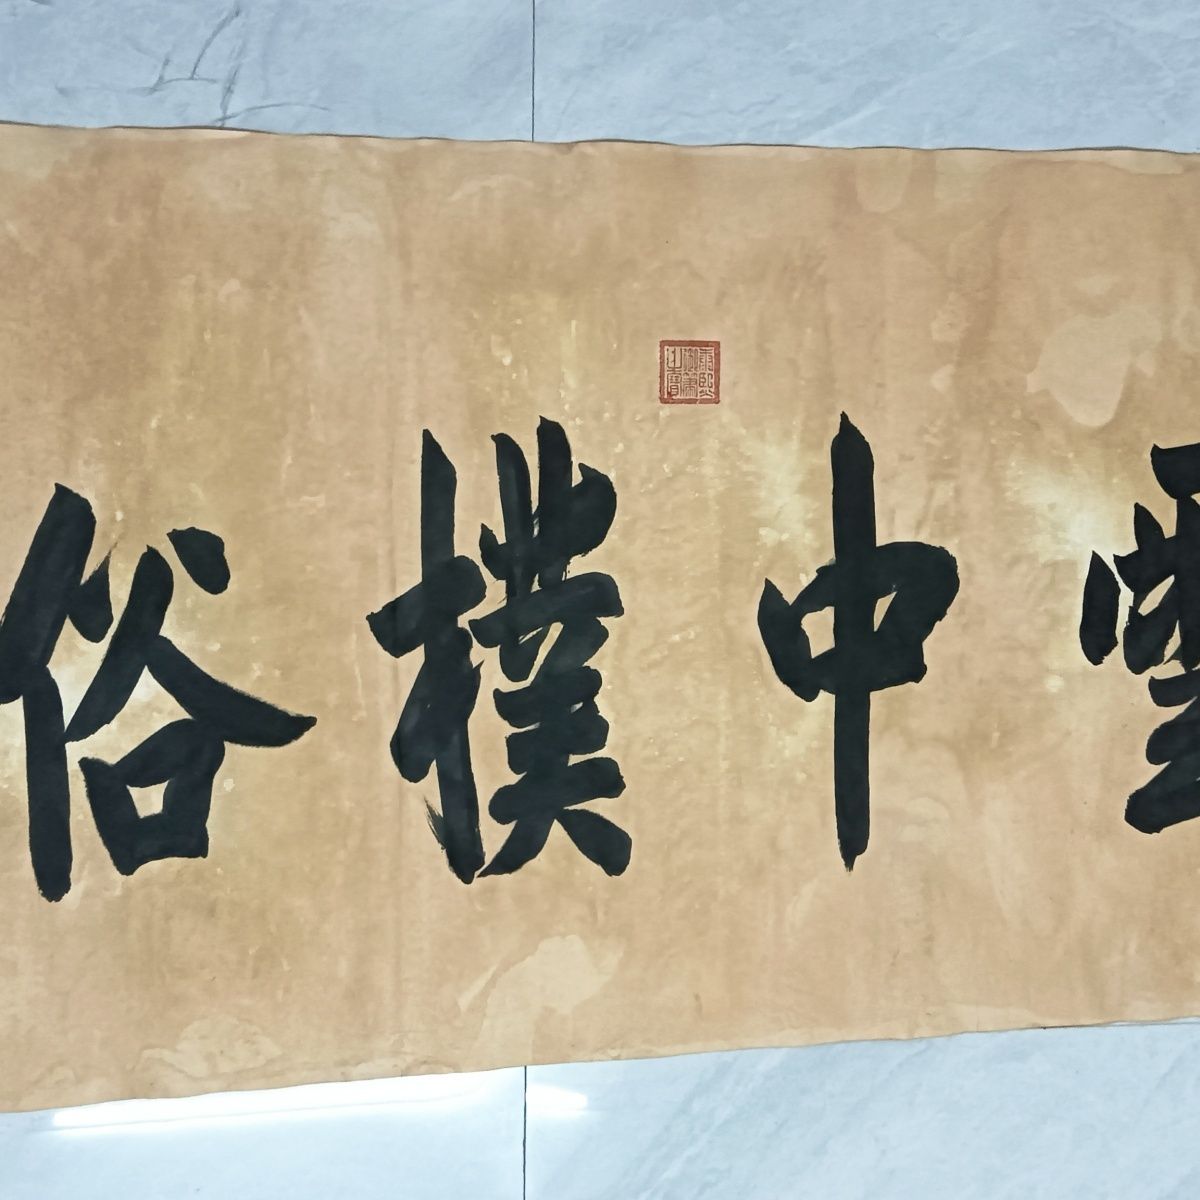 雲中樸俗
康熙御筆之寶